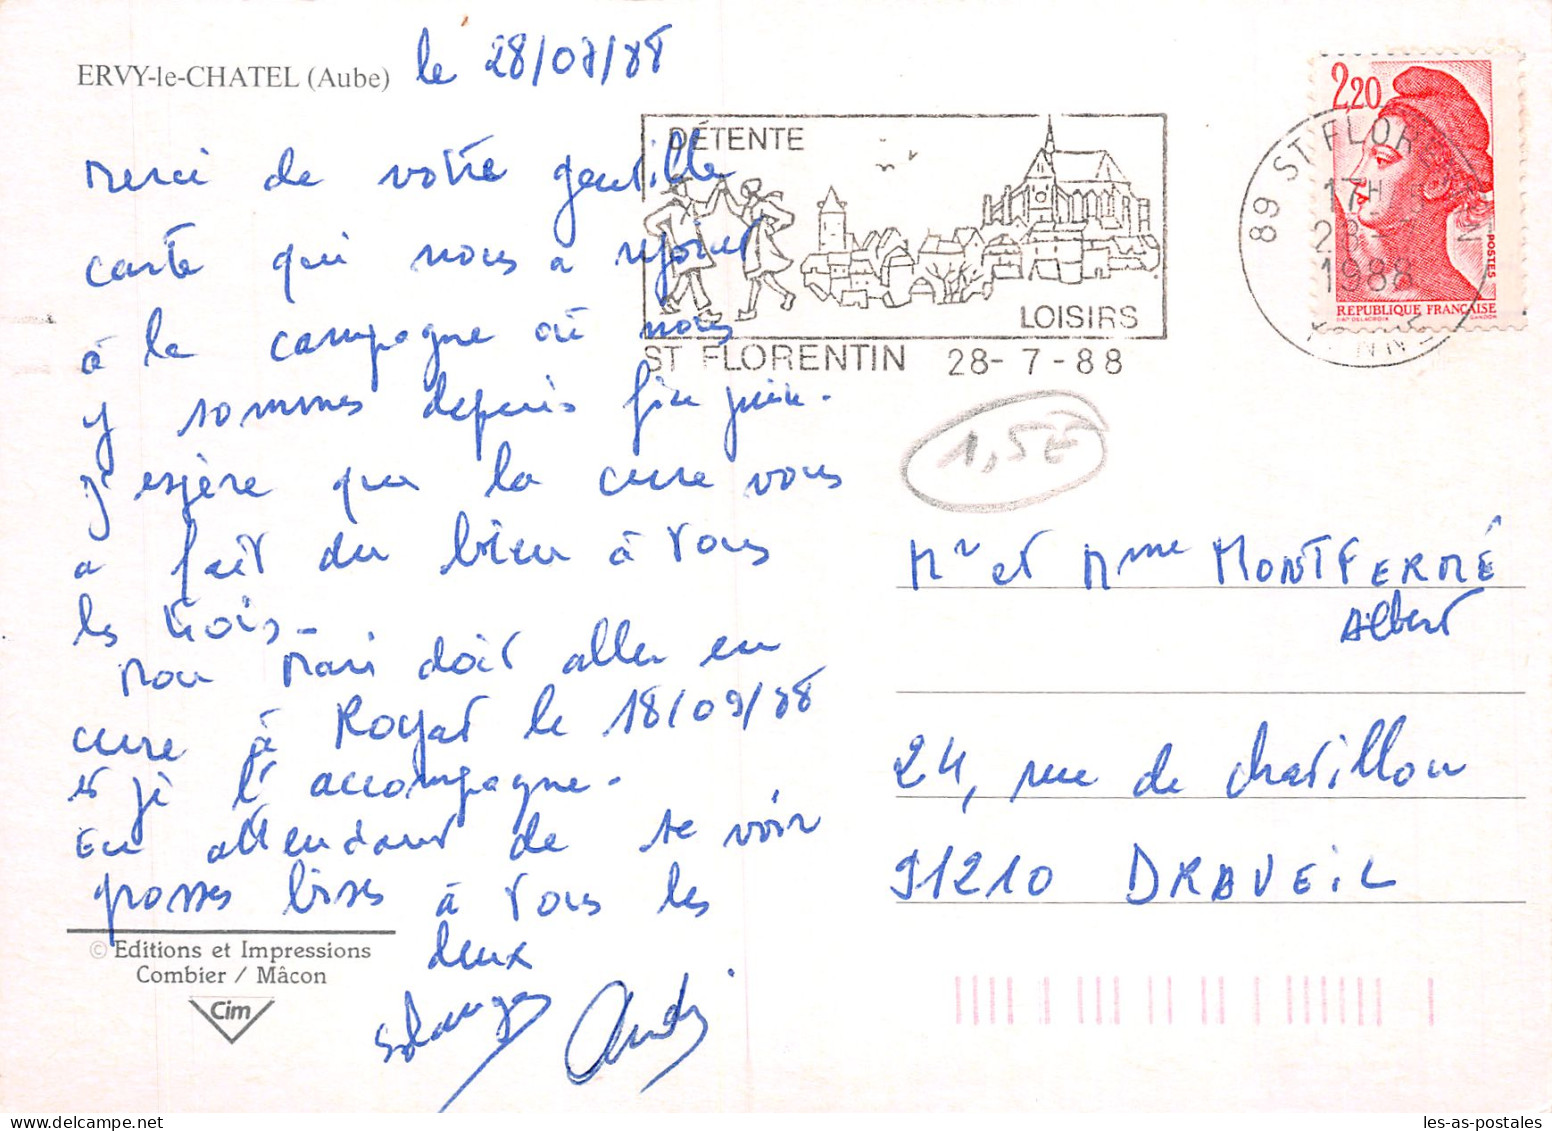 ERVY-le-CHATEL (Aube) le 28/07/88
Merci de votre gentille
carte qui nous a rejoint
à la campagne où nous
y sommes depuis fin juin.
J'espère que la cure vous
a fait du bien à tous
les trois.
Mon Mari doit aller en
cure à Royat le 18/09/88
et je l'accompagne.
En attendant de te voir
grosses bises à tous les
deux
Solange André
© Editions et Impressions
Combier / Mâcon
Cim
DÉTENTE
LOISIRS
ST FLORENTIN 28-7-88
89 ST FLORENTIN
17H
28-7
1988
YONNE
2,20
POSTES
REPUBLIQUE FRANÇAISE
D'AP DELACROIX GANDON
1,5€
Mr et Mme MONTFERMÉ
Albert
24, rue de Chatillon
91210 DRAVEIL
les-as-postales